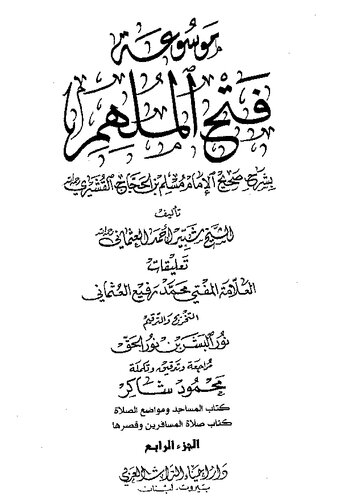 موسوعة
فتح الملهم
بشرح صحيح الإمام مسلم بن الحجاج القشيري
تأليف
الشيخ شبير أحمد العثماني
تعليقات
العلامة المفتي محمد رفيع العثماني
التخريج والترقيم
نور البشر بن نور الحق
مراجعة وتدقيق وتكملة
محمود شاكر
كتاب المساجد ومواضع الصلاة
كتاب صلاة المسافرين وقصرها
الجزء الرابع
دار إحياء التراث العربي
بيروت - لبنان